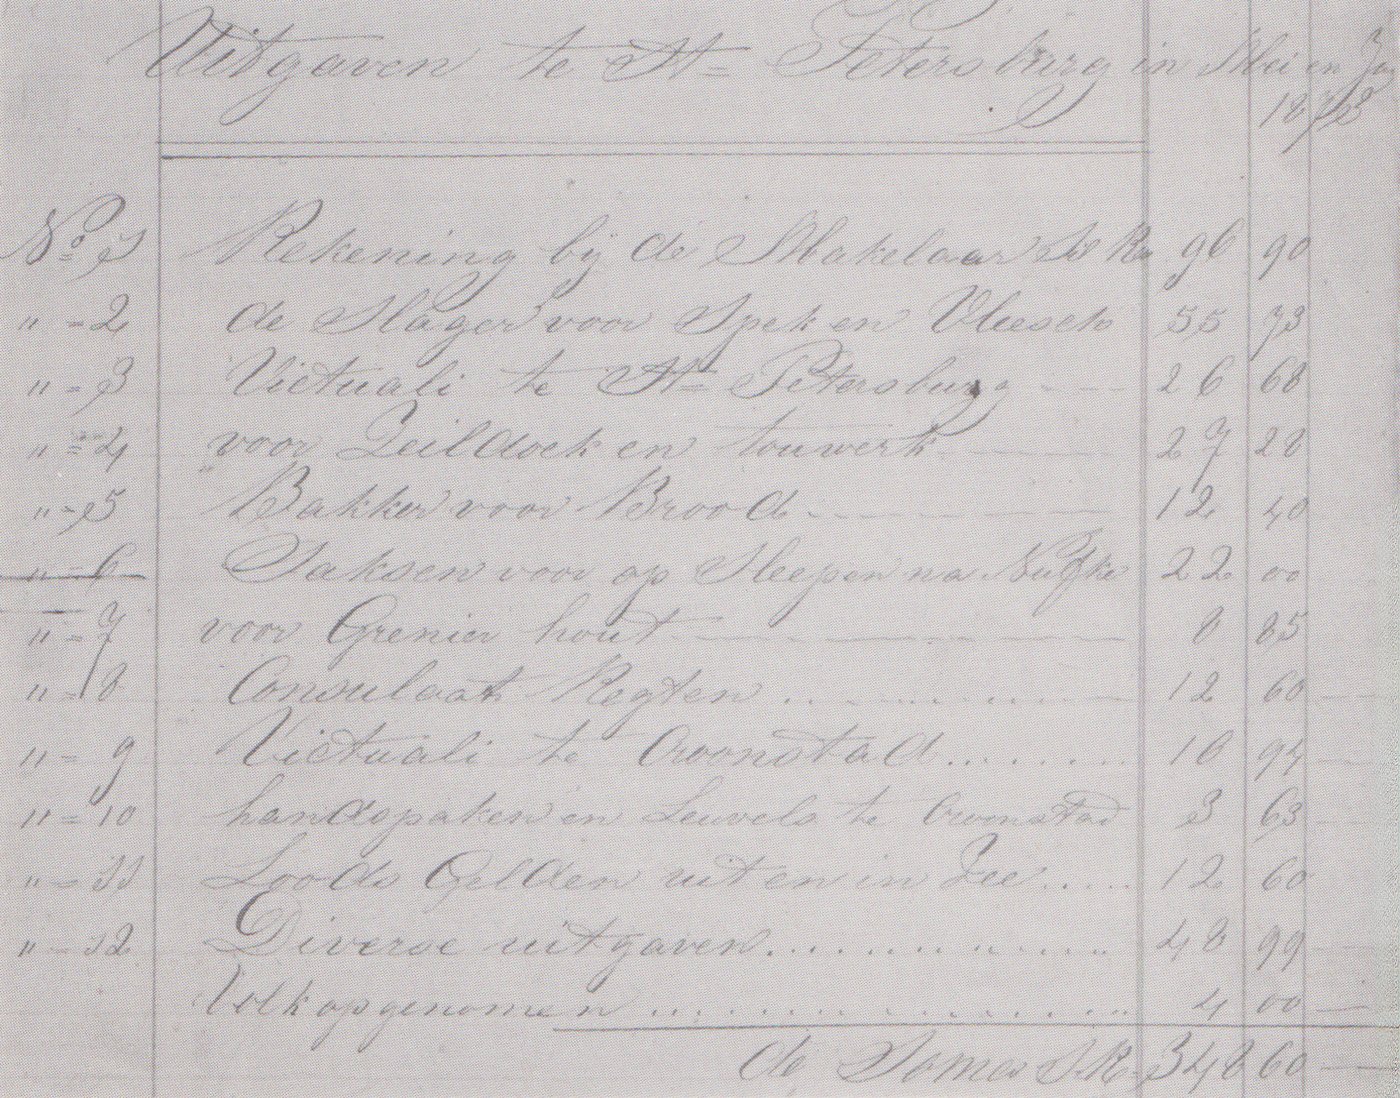 Uitgaven te St= Petersburg in Mei en
No= 1 Rekening bij de Makelaar S. Ro 96 90
" = 2 de Slager voor Spek en Vleesch 55 73
" = 3 Victuali te St= Petersburg 26 68
" = 4 voor Zeildoek en touwerk 27 28
" = 5 Bakker voor Brood 12 40
" = 6 voor op Sleepen na 22 00
" = 7 voor Grenier hout 8 85
" = 8 Consulaat Regten 12 60
" = 9 Victuali te Croonstad 16 94
" = 10 handspaken en Leuvels te Croonstad 3 63
" = 11 Loods Gelden uit en in Zee 12 60
" = 12 Diverse uitgaven 48 99
Volk opgenomen 4 00
de Soma S.R. 348 60